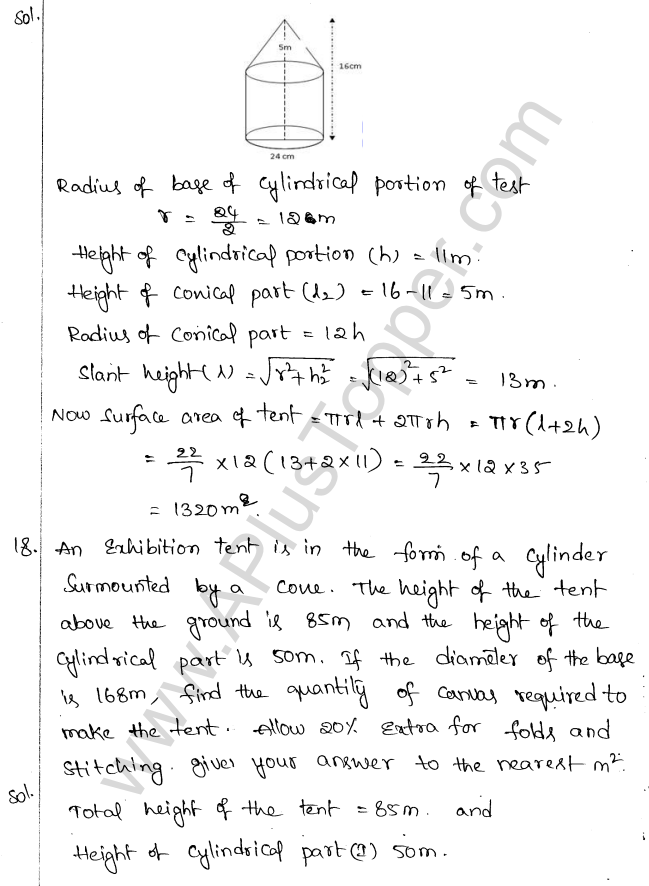 Sol.
5m
16cm
24 cm
Radius of base of cylindrical portion of test
r = 24/2 = 12m
Height of cylindrical portion (h) = 11m.
Height of conical part (h2) = 16-11 = 5m.
Radius of conical part = 12h
Slant height (l) = √r²+h₂² = √(12)²+5² = 13m.
Now surface area of tent = πrl + 2πrh = πr(l+2h)
= 22/7 ×12 (13+2×11) = 22/7 ×12×35
= 1320m².
18. An Exhibition tent is in the form of a cylinder
surmounted by a cone. The height of the tent
above the ground is 85m and the height of the
cylindrical part is 50m. If the diameter of the base
is 168m, find the quantity of canvas required to
make the tent. Allow 20% Extra for folds and
stitching. gives your answer to the nearest m².
Sol.
Total height of the tent = 85m. and
Height of cylindrical part 50m.
www.APlusTopper.com